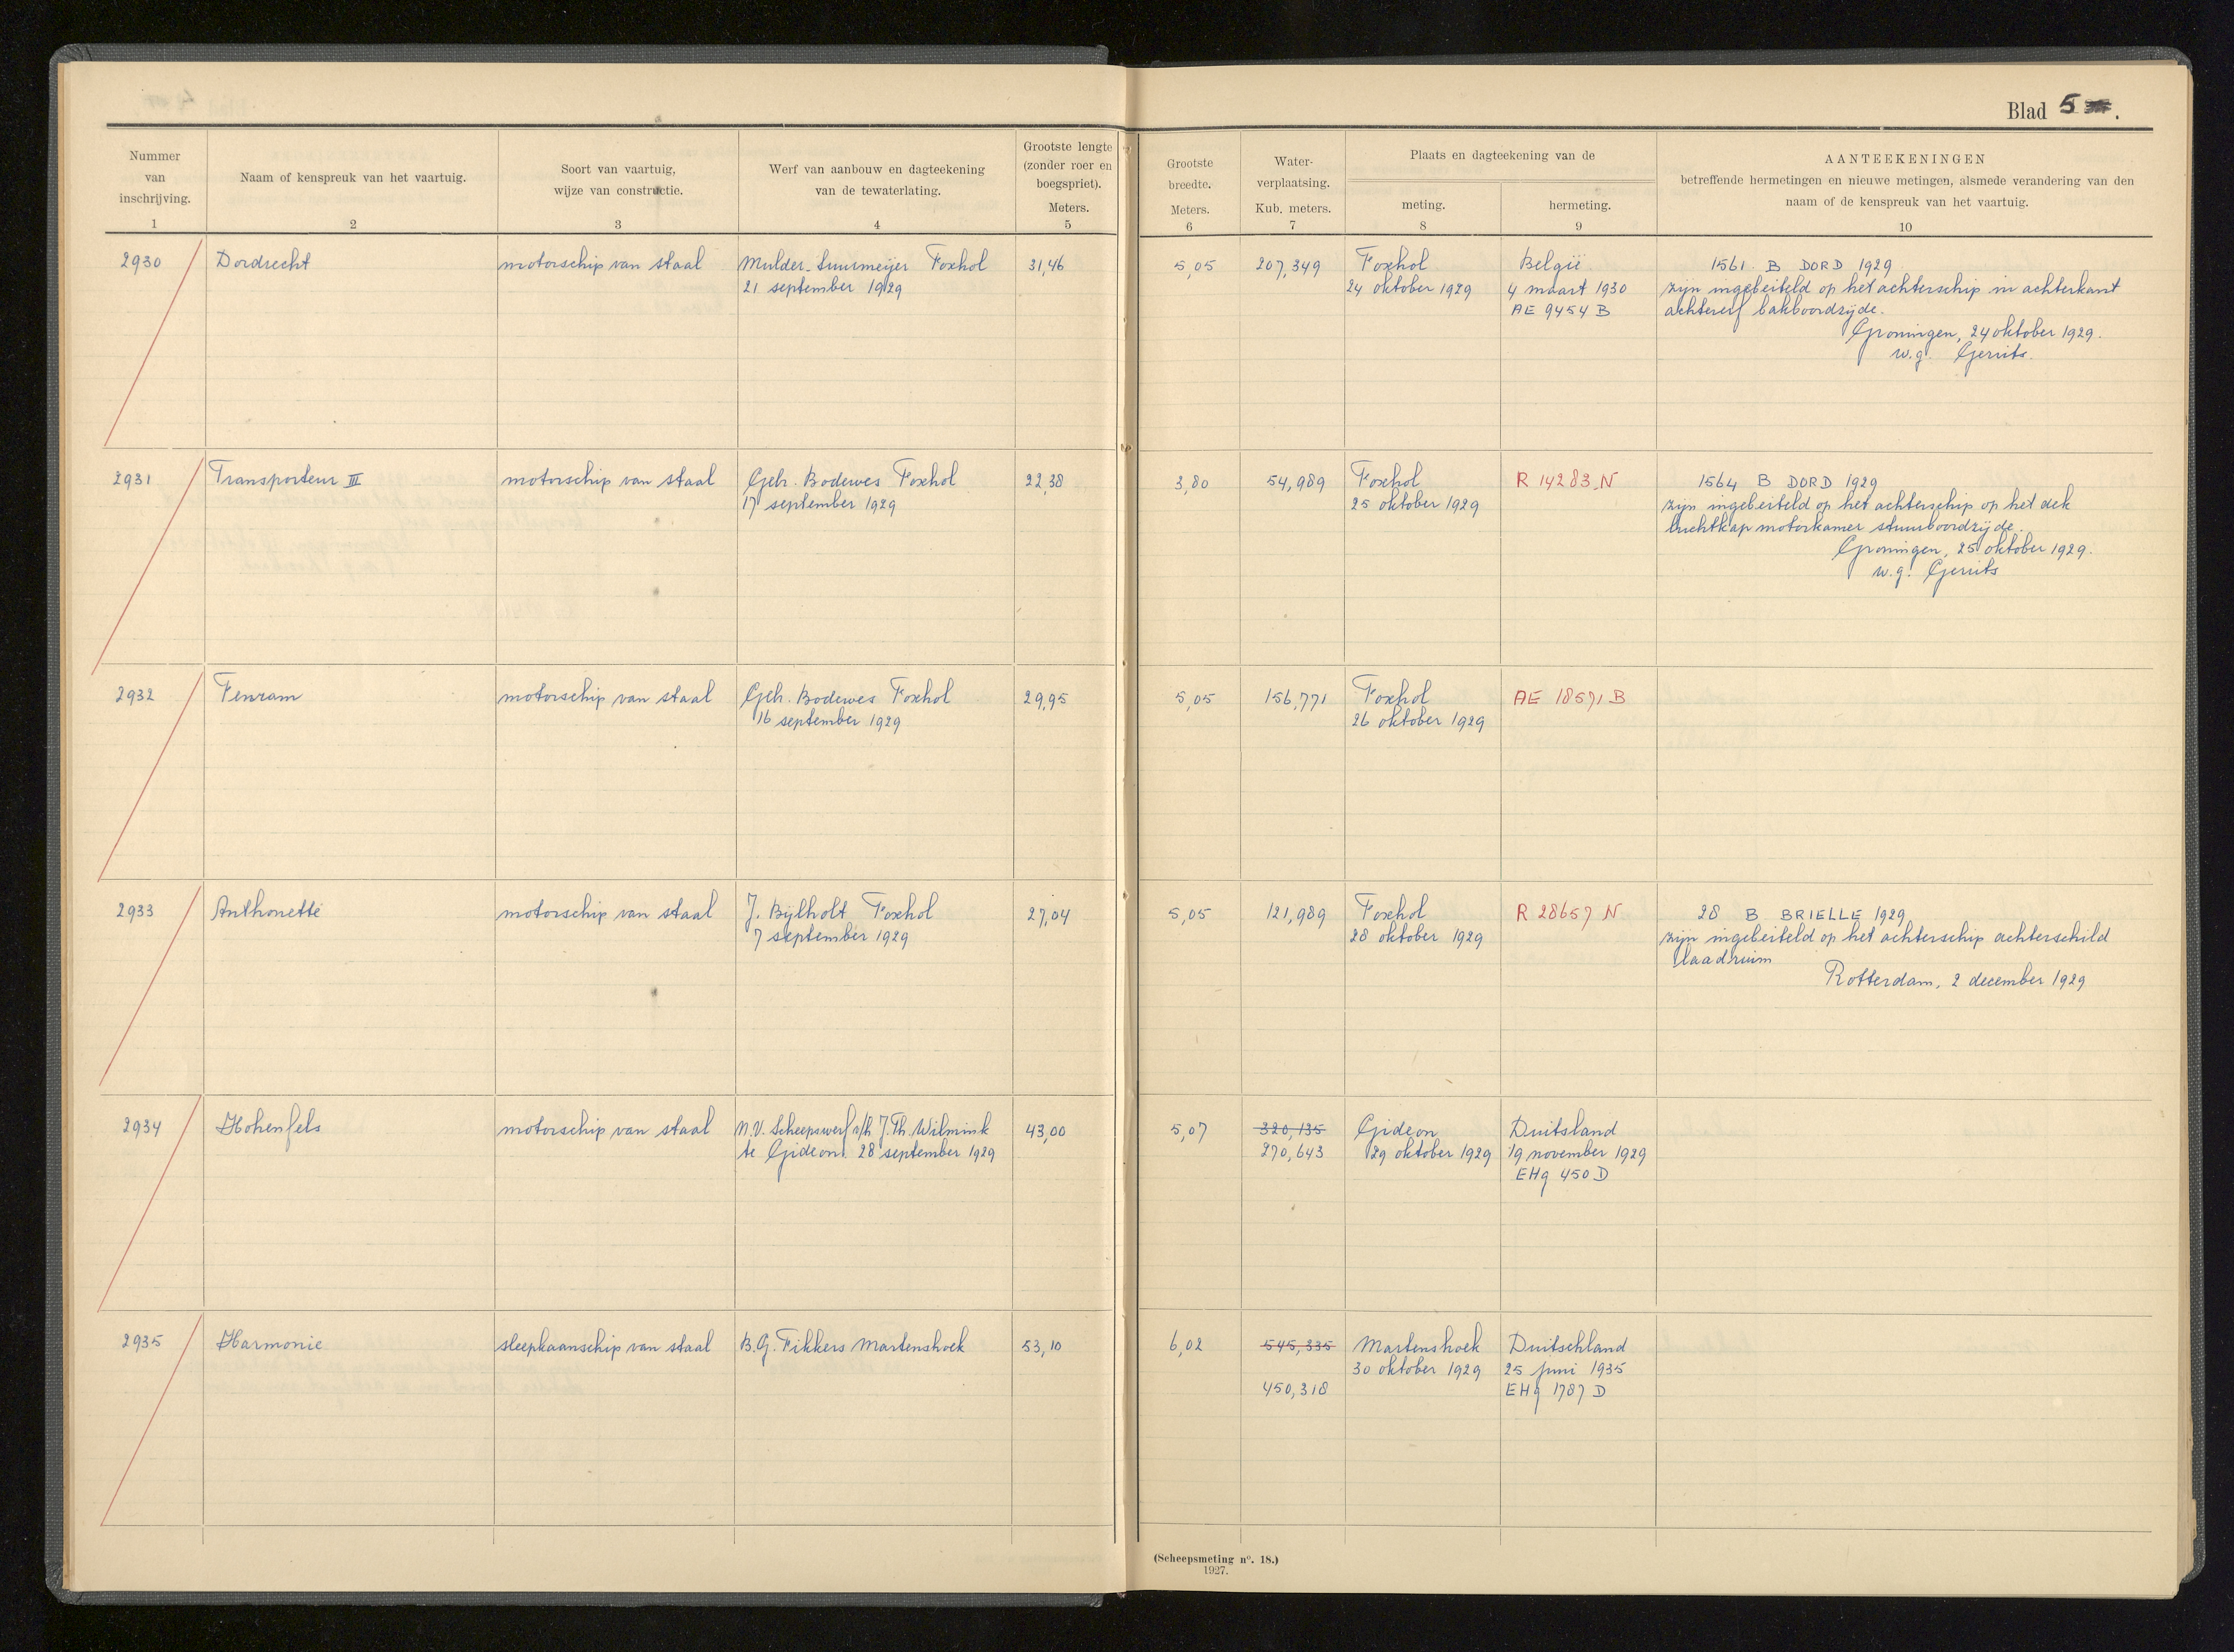 Blad 5.
Nummer van inschrijving. 1
Naam of kenspreuk van het vaartuig. 2
Soort van vaartuig, wijze van constructie. 3
Werf van aanbouw en dagteekening van de tewaterlating. 4
Grootste lengte (zonder roer en boegspriet). Meters. 5
Grootste breedte. Meters. 6
Water-verplaatsing. Kub. meters. 7
Plaats en dagteekening van de
meting. 8
hermeting. 9
AANTEEKENINGEN
betreffende hermetingen en nieuwe metingen, alsmede verandering van den
naam of de kenspreuk van het vaartuig.
10
2930 Dordrecht motorschip van staal Mulder-Suurmeijer Foxhol 31,46 5,05 207,349 Foxhol België 1561 B DORD 1929
21 september 1929 24 oktober 1929 4 maart 1930 zijn ingebeiteld op het achterschip in achterkant
AE 9454 B achtererf bakboordzijde.
Groningen, 24 oktober 1929.
w.g. Gerrits.
2931 Transporteur III motorschip van staal Gebr. Bodewes Foxhol 22,38 3,80 54,989 Foxhol R 14283 N 1564 B DORD 1929
17 september 1929 25 oktober 1929 zijn ingebeiteld op het achterschip op het dek
luchtkap motorkamer stuurboordzijde.
Groningen, 25 oktober 1929.
w.g. Gerrits
2932 Fenram motorschip van staal Gebr. Bodewes Foxhol 29,95 5,05 156,771 Foxhol AE 18571 B
16 september 1929 26 oktober 1929
2933 Anthonette motorschip van staal J. Bijlholt Foxhol 27,04 5,05 121,989 Foxhol R 28657 N 28 B BRIELLE 1929
7 september 1929 28 oktober 1929 zijn ingebeiteld op het achterschip achterschild
laadruim
Rotterdam, 2 december 1929
2934 Hohenfels motorschip van staal N.V. Scheepswerf v/h J. Th. Wilmink 43,00 5,07 320,135 Gideon Duitsland
te Gideon. 28 september 1929 270,643 29 oktober 1929 19 november 1929
EHg 450 D
2935 Harmonie sleepkaanschip van staal B.G. Fikkers Martenshoek 53,10 6,02 545,335 Martenshoek Duitschland
30 oktober 1929 25 juni 1935
450,318 EHg 1787 D
(Scheepsmeting n°. 18.)
1927.